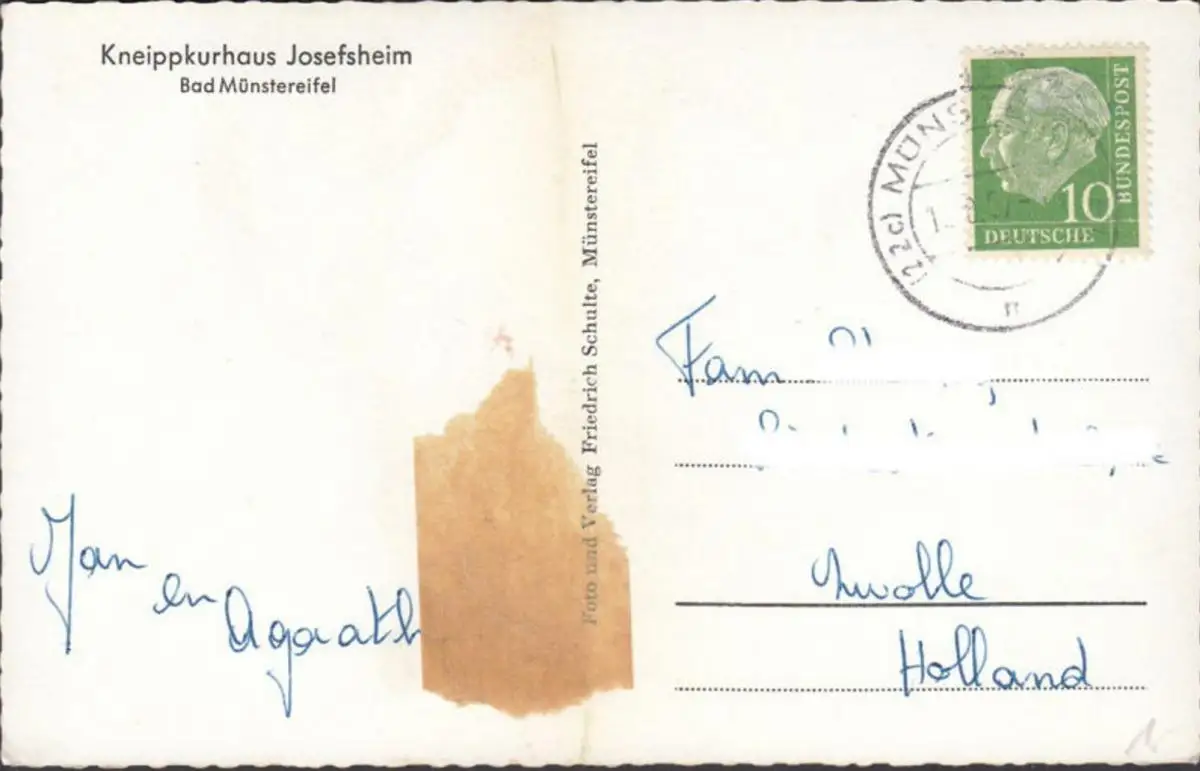 Kneippkurhaus Josefsheim
Bad Münstereifel
Jan
en
Agaath
Foto und Verlag Friedrich Schulte, Münstereifel
(22c) MÜNS
BUNDESPOST
10
DEUTSCHE
Fam
Zwolle
Holland